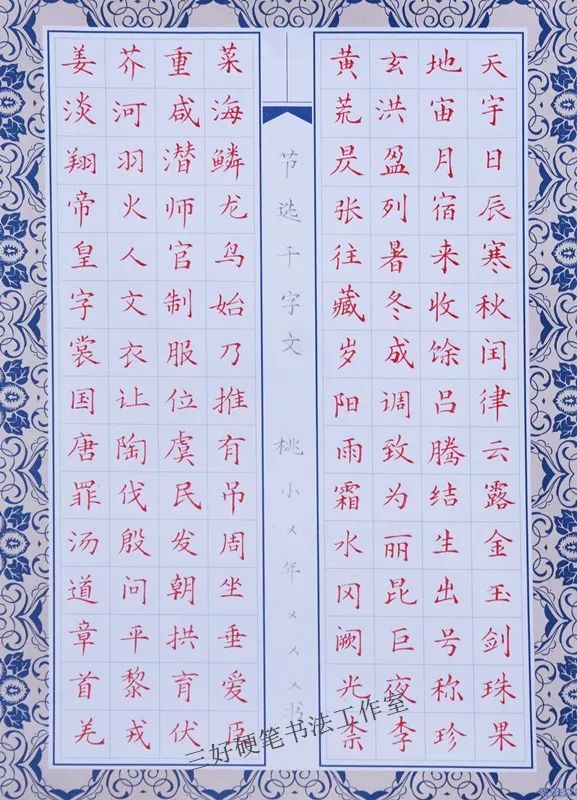 天地玄黄
宇宙洪荒
日月盈昃
辰宿列张
寒来暑往
秋收冬藏
闰馀成岁
律吕调阳
云腾致雨
露结为霜
金生丽水
玉出昆冈
剑号巨阙
珠称夜光
果珍李柰
节选千字文 桃小㐅年㐅㐅㐅书
菜重芥姜
海咸河淡
鳞潜羽翔
龙师火帝
鸟官人皇
始制文字
乃服衣裳
推位让国
有虞陶唐
吊民伐罪
周发殷汤
坐朝问道
垂拱平章
爱育黎首
臣伏戎羌
三好硬笔书法工作室